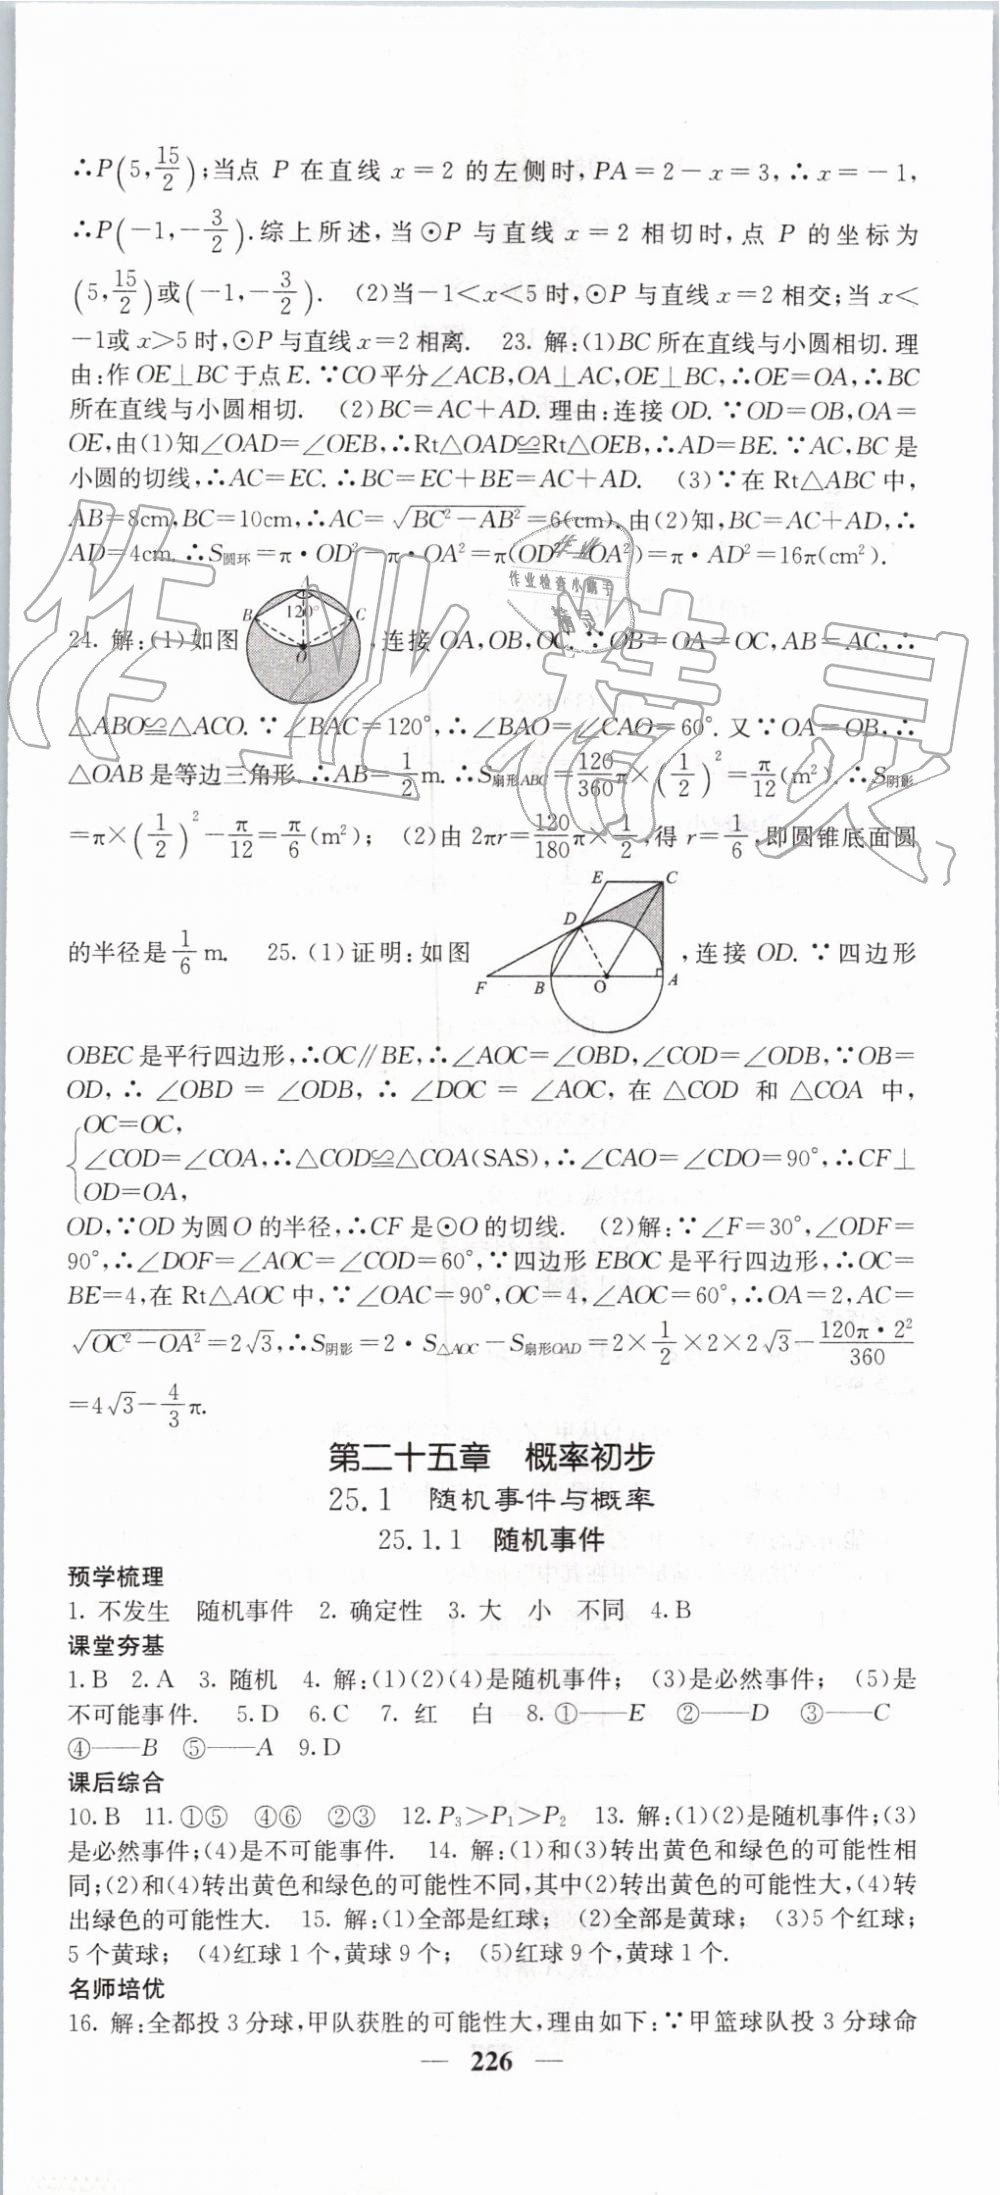 ∴P(5,15/2);当点 P 在直线 x=2 的左侧时,PA=2-x=3,∴x=-1,
∴P(-1,-3/2).综上所述,当⊙P 与直线 x=2 相切时,点 P 的坐标为
(5,15/2)或(-1,-3/2). (2)当-1<x<5 时,⊙P 与直线 x=2 相交;当 x<
-1或 x>5 时,⊙P 与直线 x=2 相离. 23. 解:(1)BC 所在直线与小圆相切.理
由:作 OE⊥BC 于点 E.∵CO 平分∠ACB,OA⊥AC,OE⊥BC,∴OE=OA,∴BC
所在直线与小圆相切. (2)BC=AC+AD.理由:连接 OD.∵OD=OB,OA=
OE,由(1)知∠OAD=∠OEB,∴Rt△OAD≌Rt△OEB,∴AD=BE.∵AC,BC 是
小圆的切线,∴AC=EC.∴BC=EC+BE=AC+AD. (3)∵在 Rt△ABC 中,
AB=8cm,BC=10cm,∴AC=√(BC²-AB²)=6(cm).由(2)知,BC=AC+AD,∴
AD=4cm.∴S圆环=π·OD²-π·OA²=π(OD²-OA²)=π·AD²=16π(cm²).
作业
作业检查小助手
精灵
A
B 120° C
O
24. 解:(1)如图 ,连接 OA,OB,OC.∵OB=OA=OC,AB=AC,∴
△ABO≌△ACO.∵∠BAC=120°,∴∠BAO=∠CAO=60°.又∵OA=OB,∴
△OAB 是等边三角形.∴AB=1/2m.∴S扇形ABC=120/360π×(1/2)²=π/12(m²).∴S阴影
=π×(1/2)²-π/12=π/6(m²); (2)由 2πr=120/180π×1/2,得 r=1/6,即圆锥底面圆
E C
D
F B O A
的半径是1/6m. 25.(1)证明:如图 ,连接 OD.∵四边形
OBEC 是平行四边形,∴OC∥BE,∴∠AOC=∠OBD,∠COD=∠ODB,∵OB=
OD,∴∠OBD=∠ODB,∴∠DOC=∠AOC,在△COD 和△COA 中,
{OC=OC,
∠COD=∠COA,∴△COD≌△COA(SAS),∴∠CAO=∠CDO=90°,∴CF⊥
OD=OA,
OD,∵OD 为圆 O 的半径,∴CF 是⊙O 的切线. (2)解:∵∠F=30°,∠ODF=
90°,∴∠DOF=∠AOC=∠COD=60°,∵四边形 EBOC 是平行四边形,∴OC=
BE=4,在 Rt△AOC 中,∵∠OAC=90°,OC=4,∠AOC=60°,∴OA=2,AC=
√(OC²-OA²)=2√3,∴S阴影=2·S△AOC-S扇形OAD=2×1/2×2×2√3-120π·2²/360
=4√3-4/3π.
第二十五章 概率初步
25.1 随机事件与概率
25.1.1 随机事件
预学梳理
1. 不发生 随机事件 2. 确定性 3. 大 小 不同 4.B
课堂夯基
1.B 2.A 3. 随机 4. 解:(1)(2)(4)是随机事件; (3)是必然事件; (5)是
不可能事件. 5.D 6.C 7. 红 白 8. ①——E ②——D ③——C
④——B ⑤——A 9.D
课后综合
10.B 11.①⑤ ④⑥ ②③ 12.P₃>P₁>P₂ 13. 解:(1)(2)是随机事件;(3)
是必然事件;(4)是不可能事件. 14. 解:(1)和(3)转出黄色和绿色的可能性相
同;(2)和(4)转出黄色和绿色的可能性不同,其中(2)转出黄色的可能性大,(4)转
出绿色的可能性大. 15. 解:(1)全部是红球; (2)全部是黄球; (3)5 个红球;
5 个黄球; (4)红球 1 个,黄球 9 个; (5)红球 9 个,黄球 1 个.
名师培优
16. 解:全都投 3 分球,甲队获胜的可能性大,理由如下:∵甲篮球队投 3 分球命
— 226 —
作业精灵